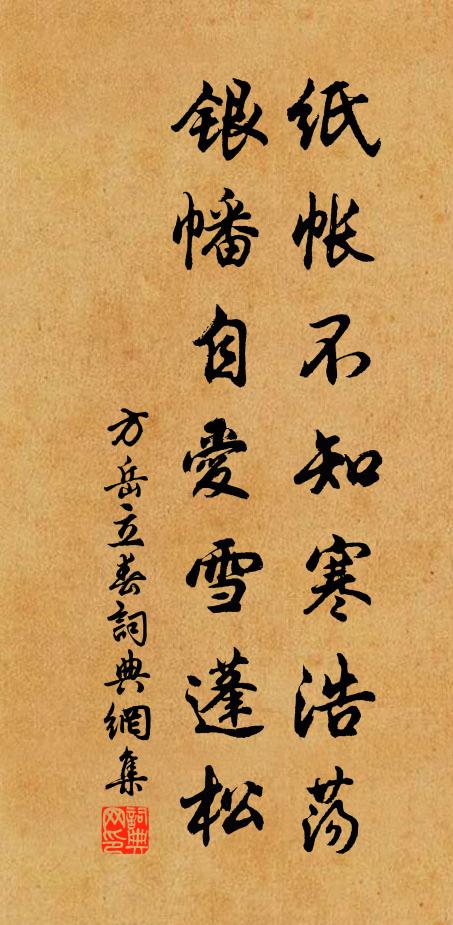 纸帐不知寒浩荡
银幡自爱雪蓬松
方岳立春詞典網集
詞典網印